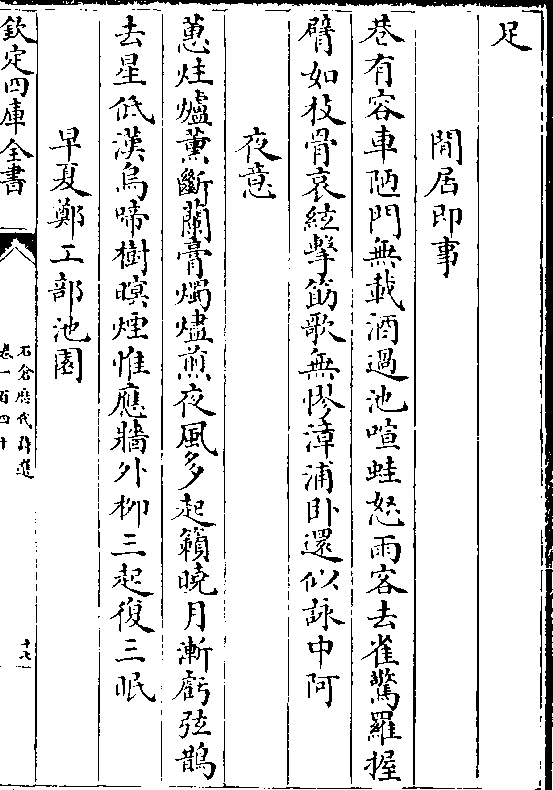 足
閒居即事
巷有容車陋門無載酒過池喧蛙怒雨客去雀驚羅握
臂如枝骨哀絃擊筯歌無憀漳浦卧還似詠中阿
夜意
蕙炷爐薰斷蘭膏燭燼煎夜風多起籟曉月漸虧弦鵲
去星低漢烏啼樹暝煙惟應牆外柳三起復三眠
早夏鄭工部池園
欽定四庫全書
石倉歷代詩選
卷一百四十
十七